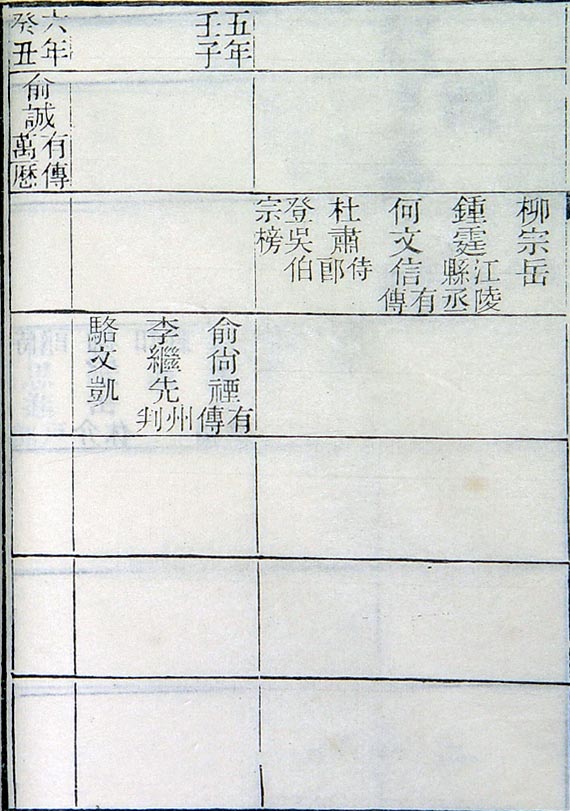 柳宗岳
鍾霆 江陵縣丞
何文信 有傳
杜肅 侍郎
登吳伯宗榜
五年壬子
俞尙禋 有傳
李繼先 州判
駱文凱
六年癸丑
俞誠 有傳萬曆